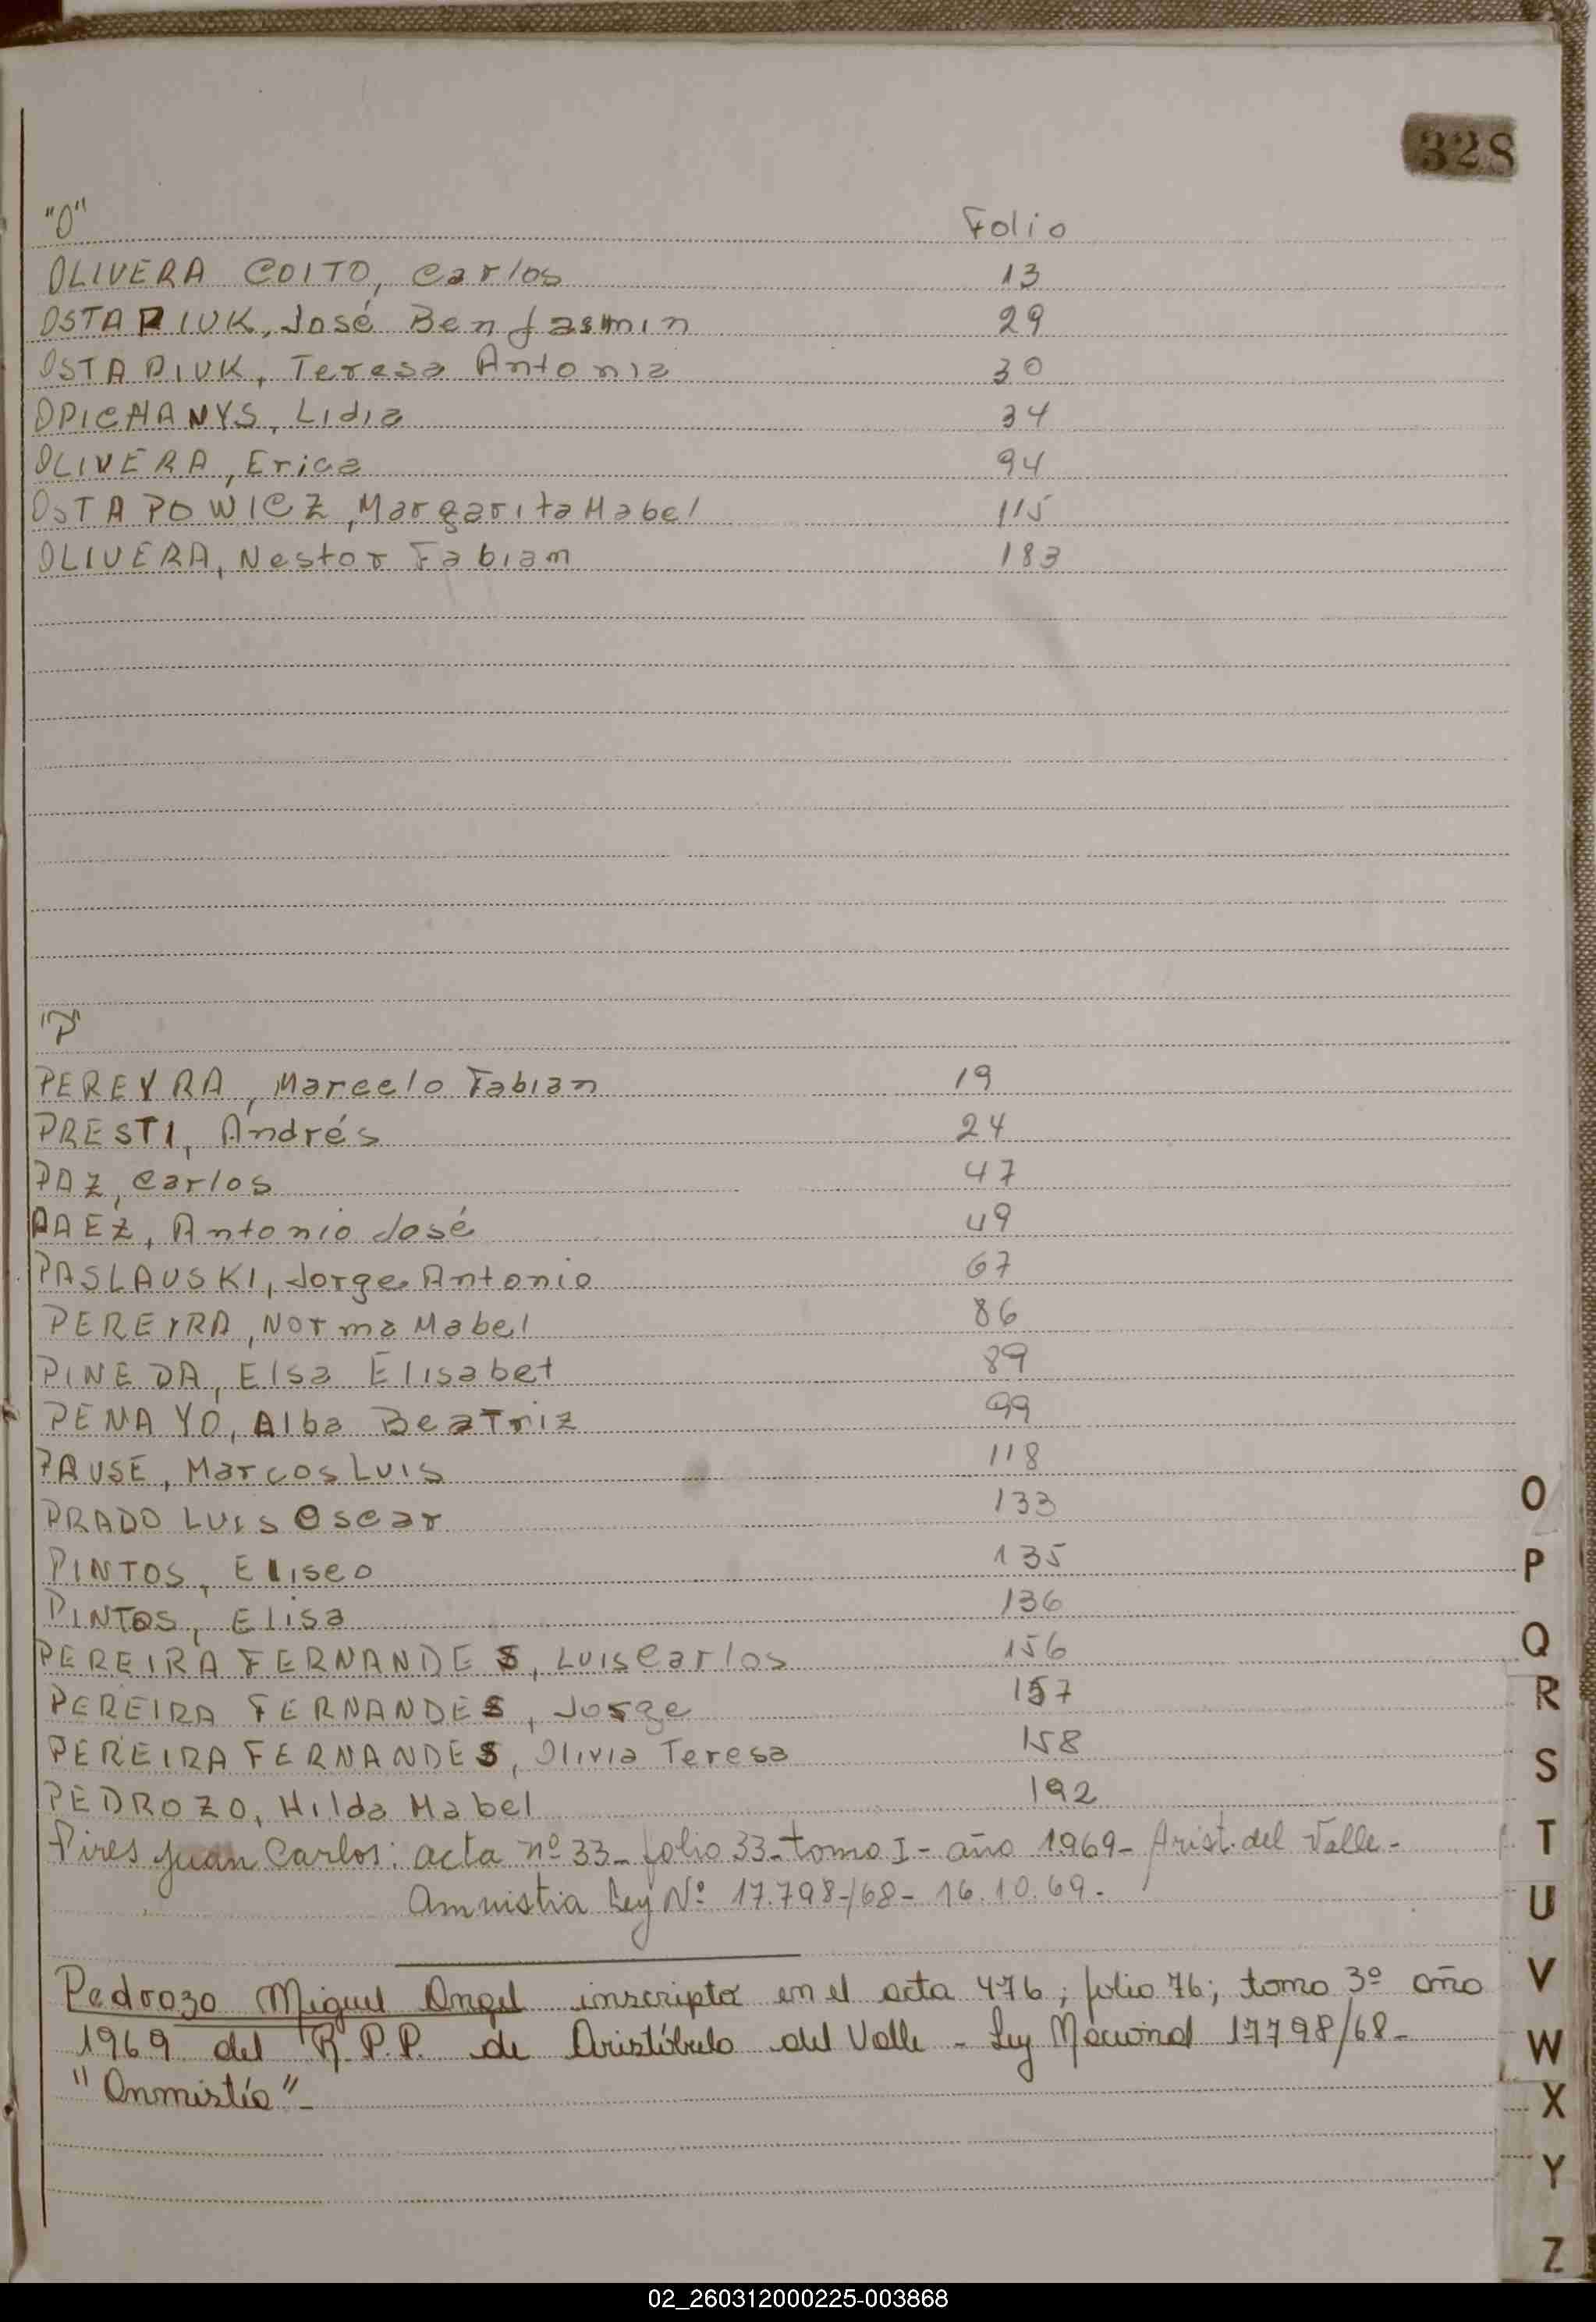 328
"O" Folio
OLIVERA COITO, Carlos 13
OSTAPIUK, José Benjasmin 29
OSTAPIUK, Teresa Antonia 30
OPICHANYS, Lidia 34
OLIVERA, Erica 94
OSTAPOWICZ, Margarita Mabel 115
OLIVERA, Nestor Fabian 183
"P"
PEREYRA, Marcelo Fabian 19
PRESTI, Andrés 24
PAZ, Carlos 47
PAEZ, Antonio José 49
PASLAUSKI, Jorge Antonio 67
PEREYRA, Norma Mabel 86
PINEDA, Elsa Elisabet 89
PENAYO, Alba Beatriz 99
PAUSE, Marcos Luis 118
PRADO LUIS Oscar 133
PINTOS, Eliseo 135
PINTOS, Elisa 136
PEREIRA FERNANDES, Luis Carlos 156
PEREIRA FERNANDES, Jorge 157
PEREIRA FERNANDES, Olivia Teresa 158
PEDROZO, Hilda Mabel 192
Pires Juan Carlos: acta nº 33- folio 33- tomo I- año 1969- Arist. del Valle-
Amnistia Ley Nº 17.798-/68- 16.10.69.
Pedrozo Miguel Angel inscripto en el acta 476; folio 76; tomo 3º año
1969 del R.P.P. de Aristóbulo del Valle - Ley Nacional 17798/68-
"Anmistía"-
O
P
Q
R
S
T
U
V
W
X
Y
Z
02_260312000225-003868